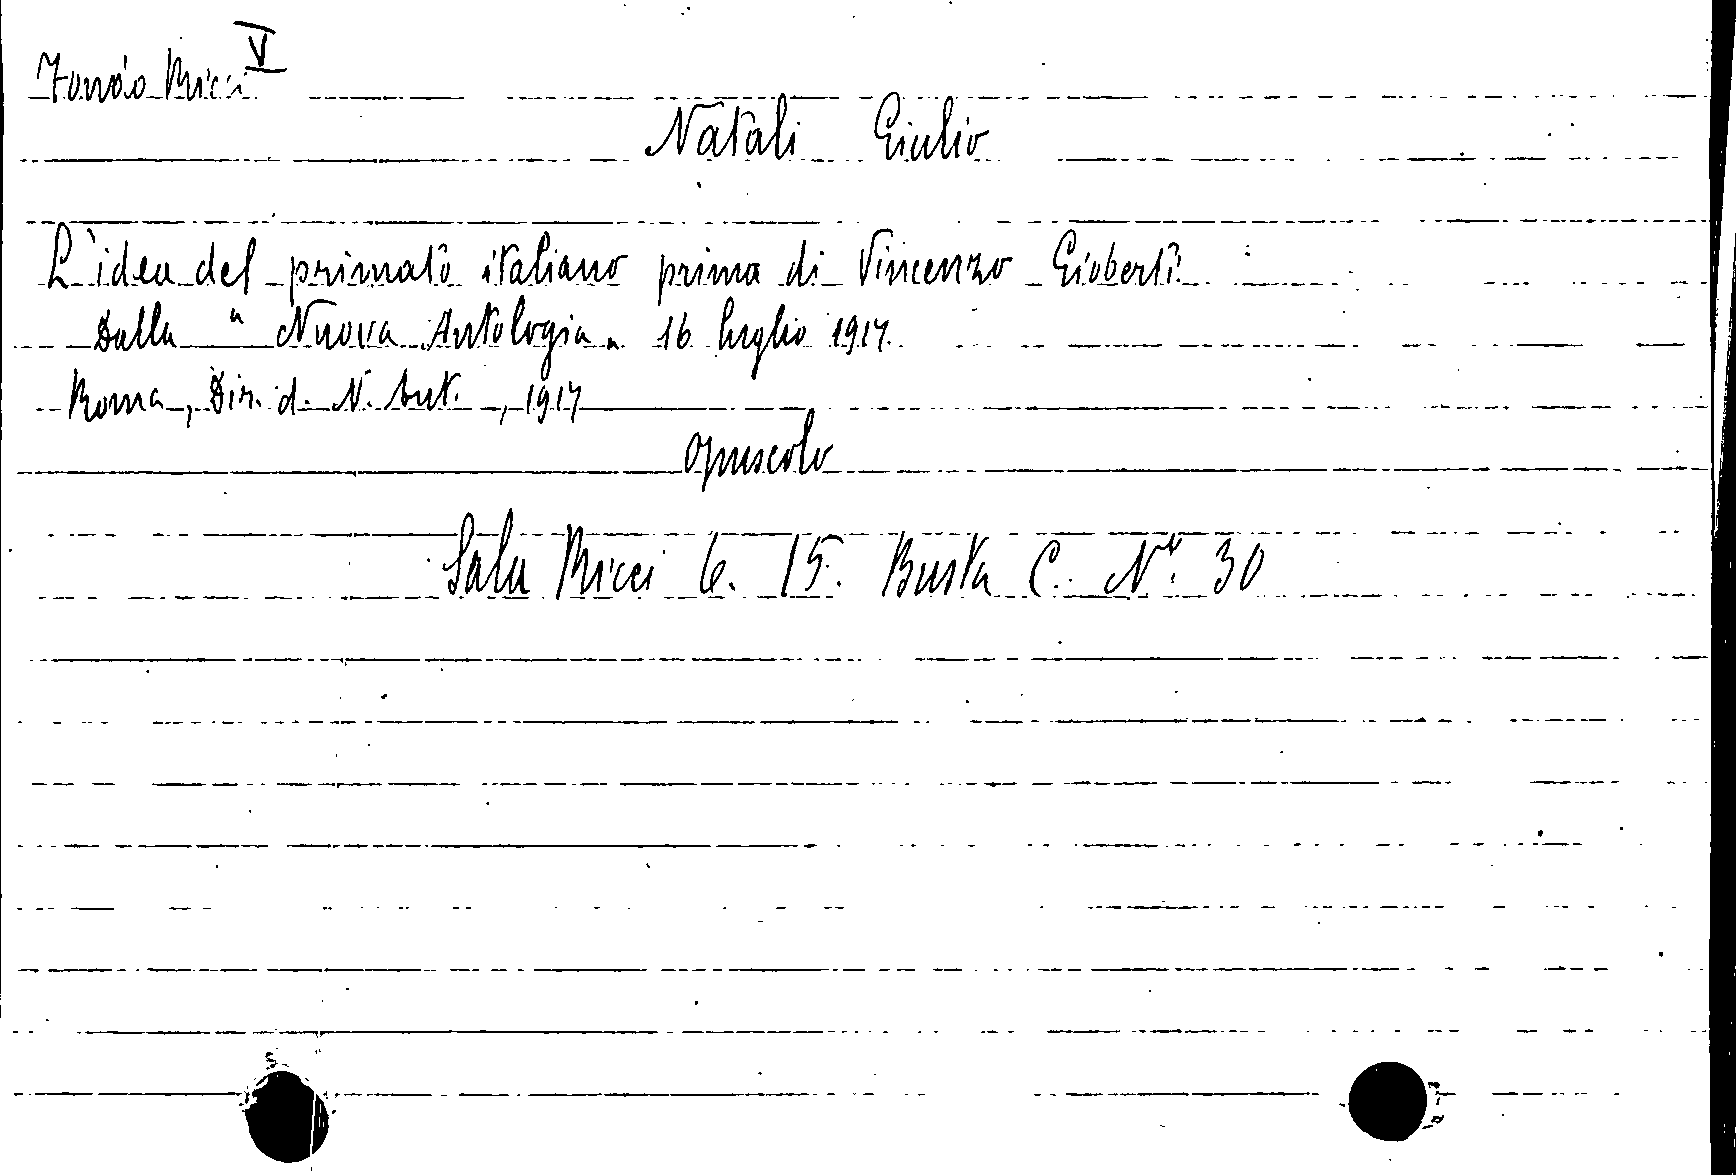 Fondo Ricci V
Natali Giulio
L'idea del primato italiano prima di Vincenzo Gioberti
Dalla "Nuova Antologia" 16 luglio 1917.
Roma, Dir. d. N. Ant., 1917
opuscolo
Sala Ricci 6. 15. Busta C. N° 30